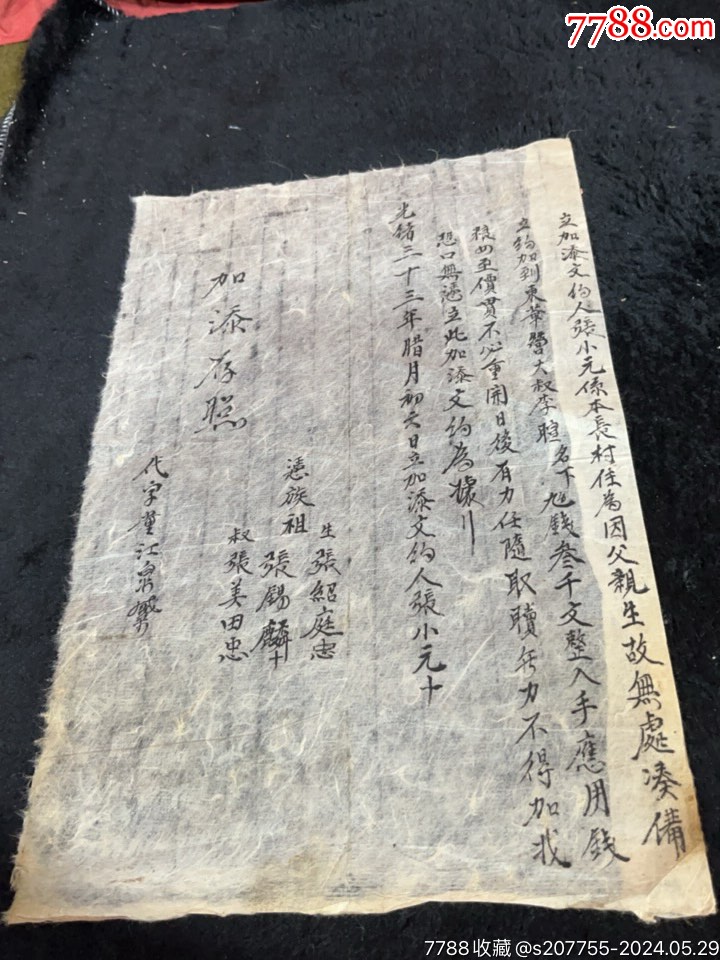 7788.com
立加添文約人張小元係本長村住為因父親生故無處湊備
立約加到東華營大叔李暄名下九錢叁千文整入手應用錢
粮如至價貫不必重開日後有力任隨取贖無力不得加找
恐口無憑立此加添文約為據
光緒二十三年腊月初六日立加添文約人張小元十
憑族祖
生張紹庭忠
張錫麟十
叔張美田忠
加添存照
代字
7788收藏@s207755-2024.05.29